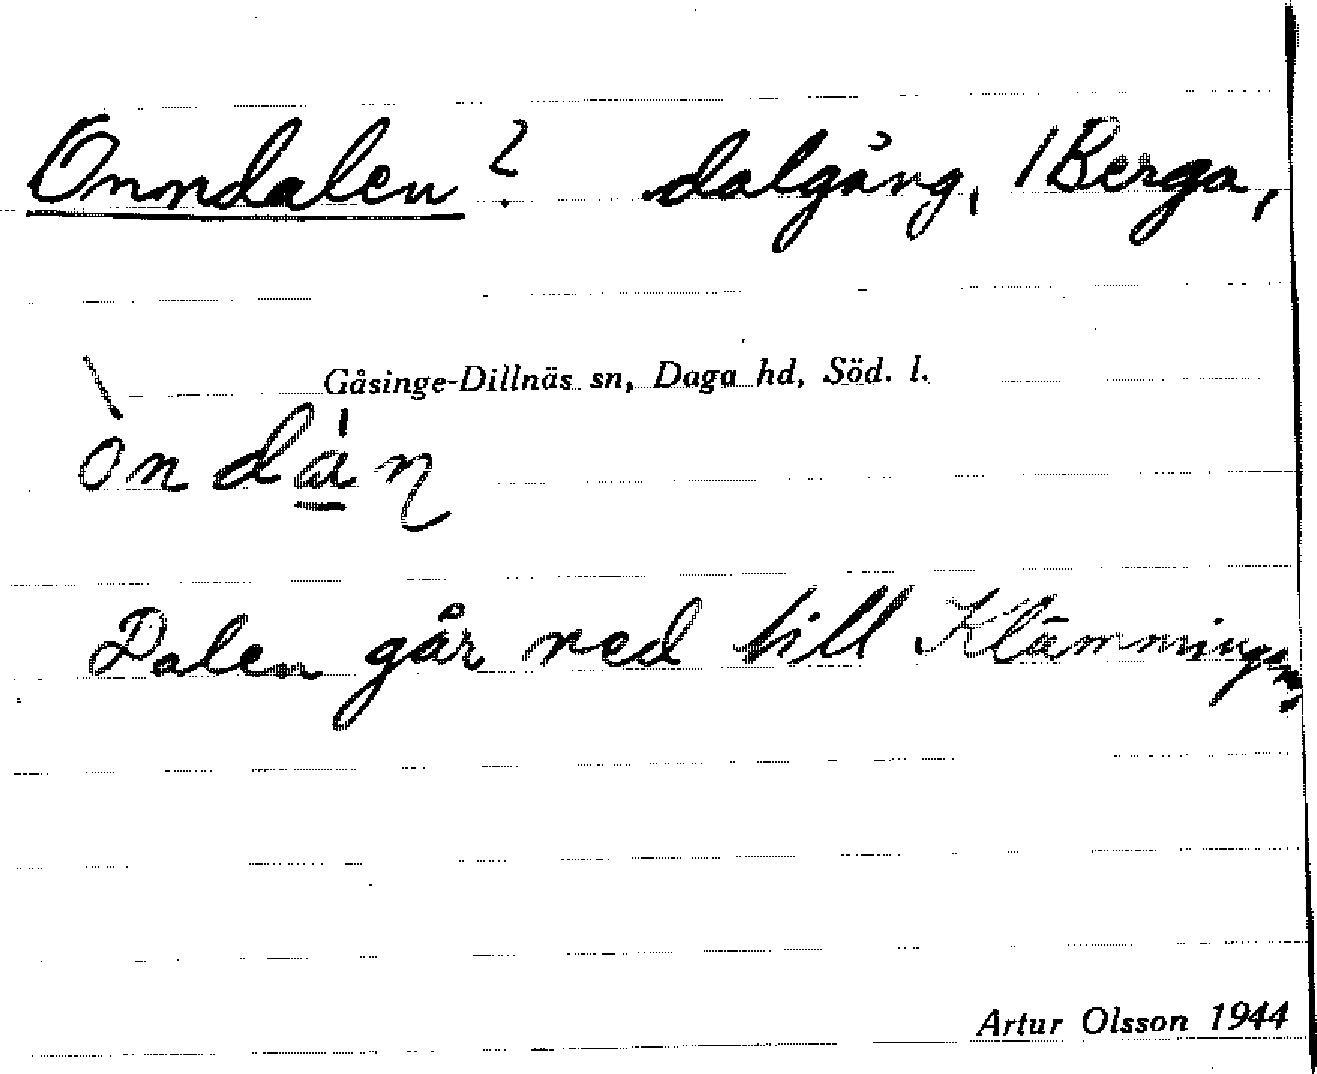 Onndalen? dalgång, /Berga,
Gåsinge-Dillnäs sn, Daga hd, Söd. l.
ònda̱'ŋ
Dalen går ned till Klämmingen
Artur Olsson 1944